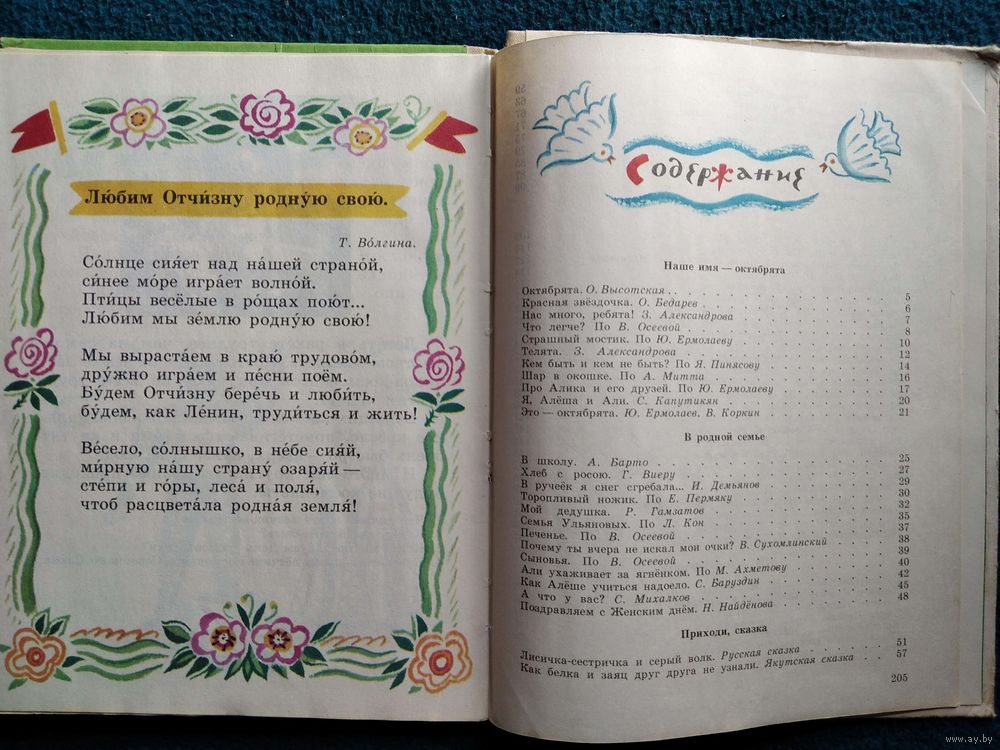 Лю́бим Отчи́зну родну́ю свою́.
Т. Во́лгина.
Со́лнце сия́ет над на́шей страно́й,
си́нее мо́ре игра́ет волно́й.
Пти́цы весёлые в ро́щах пою́т...
Лю́бим мы зе́млю родну́ю свою́!
Мы выраста́ем в краю́ трудово́м,
дру́жно игра́ем и пе́сни поём.
Бу́дем Отчи́зну бере́чь и люби́ть,
бу́дем, как Ле́нин, труди́ться и жить!
Ве́село, со́лнышко, в не́бе сия́й,
ми́рную на́шу страну́ озаря́й —
сте́пи и го́ры, леса́ и поля́,
чтоб расцвета́ла родна́я земля́!
Содержание
Наше имя — октябрята
Октябрята. О. Высотская . . 5
Красная звёздочка. О. Бедарев . 6
Нас много, ребята! З. Александрова 7
Что легче? По В. Осеевой . 8
Страшный мостик. По Ю. Ермолаеву 10
Телята. З. Александрова . 12
Кем быть и кем не быть? По Я. Пинясову . 14
Шар в окошке. По А. Митта . 16
Про Алика и его друзей. По Ю. Ермолаеву 17
Я, Алёша и Али. С. Капутикян . 20
Это — октябрята. Ю. Ермолаев, В. Коркин . 21
В родной семье
В школу. А. Барто . 25
Хлеб с росою. Г. Виеру . 27
В ручеёк я снег сгребала... И. Демьянов . 29
Торопливый ножик. По Е. Пермяку . 30
Мой дедушка. Р. Гамзатов . 32
Семья Ульяновых. По Л. Кон . 35
Печенье. По В. Осеевой . 37
Почему ты вчера не искал мои очки? В. Сухомлинский . 38
Сыновья. По В. Осеевой . 39
Али ухаживает за ягнёнком. По М. Ахметову . 40
Как Алёше учиться надоело. С. Баруздин . 42
А что у вас? С. Михалков . 45
Поздравляем с Женским днём. Н. Найдёнова . 48
Приходи, сказка
Лисичка-сестричка и серый волк. Русская сказка . 51
Как белка и заяц друг друга не узнали. Якутская сказка . . 57
205
www.ay.by